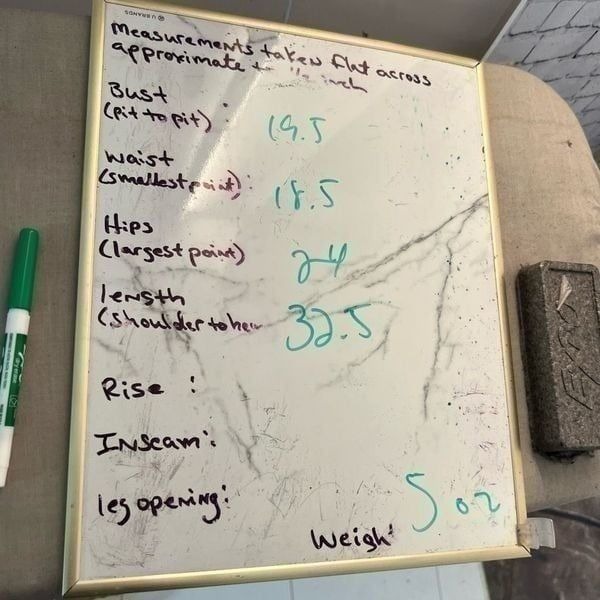 U BRANDS
Measurements taken flat across
approximate to 1/2 inch
Bust
(pit to pit) : 19.5
Waist
(smallest point) : 18.5
Hips
(largest point) 24
length
(shoulder to hem 32.5
Rise :
Inseam :
leg opening :
Weigh : 5 oz